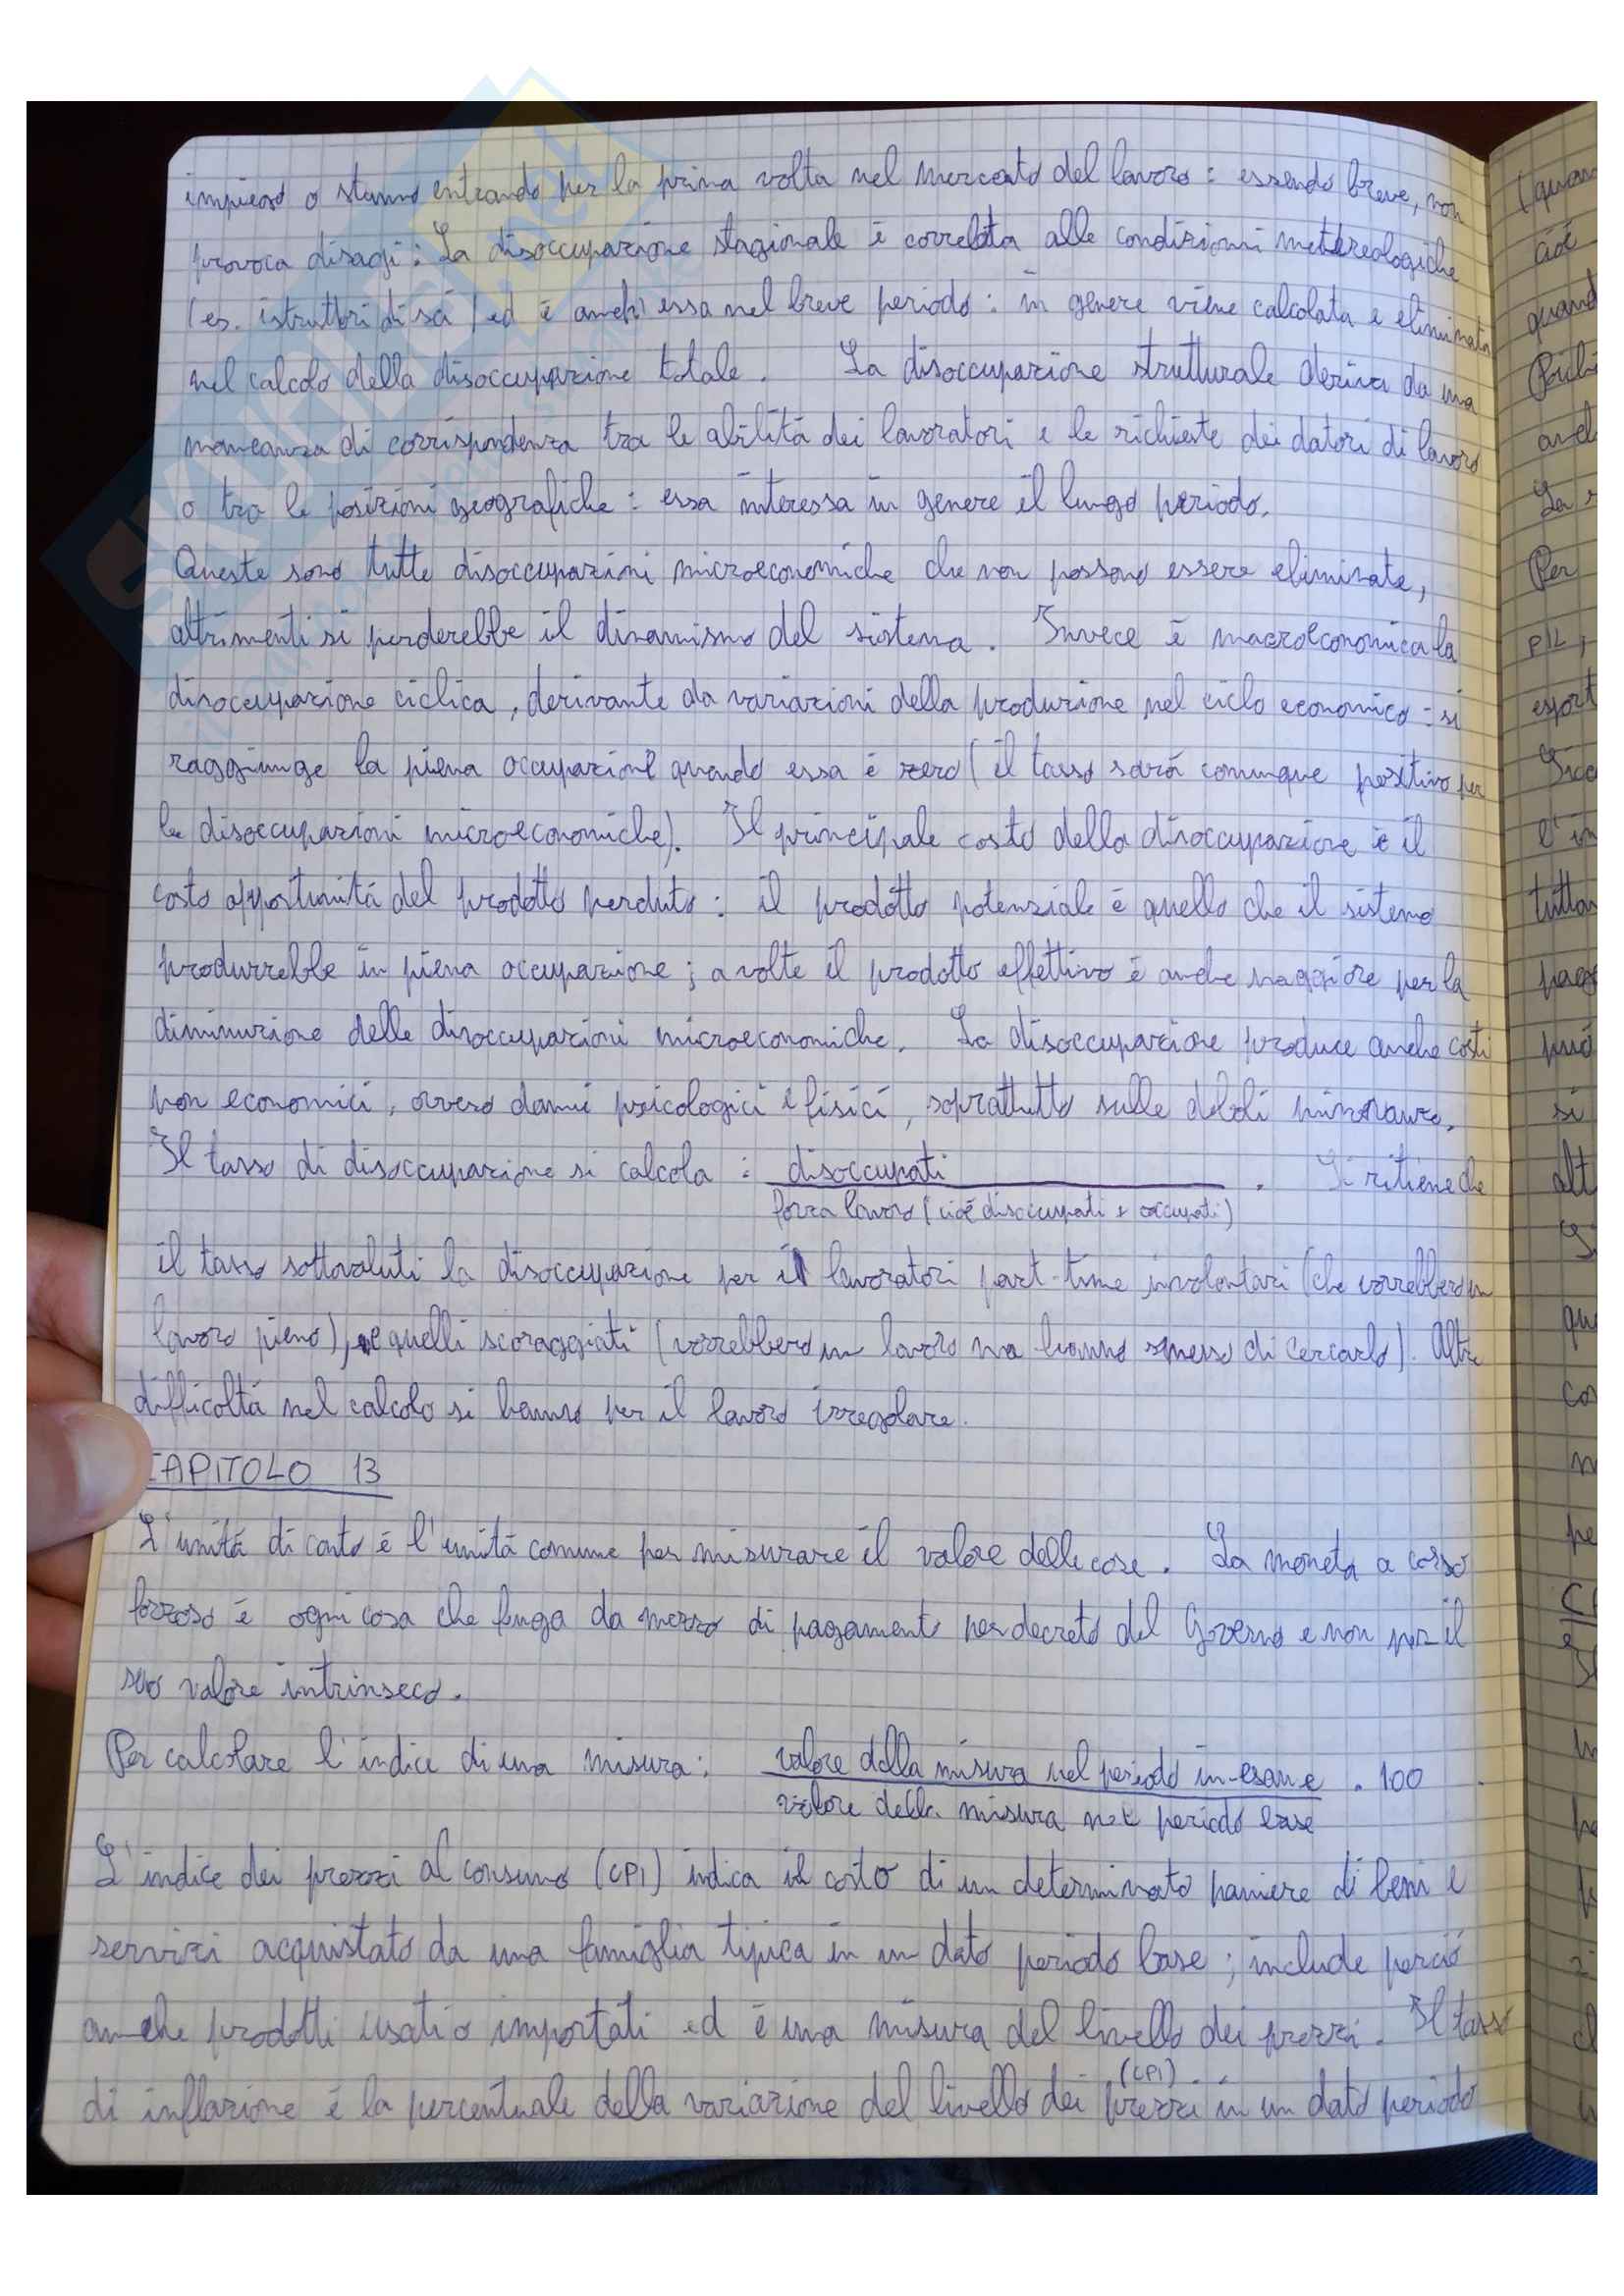 impiego o stanno entrando per la prima volta nel mercato del lavoro: essendo breve, non
provoca disagi. La disoccupazione stagionale è correlata alle condizioni metereologiche
(es. istruttori di sci) ed è anch'essa nel breve periodo: in genere viene calcolata e eliminata
nel calcolo della disoccupazione totale. La disoccupazione strutturale deriva da una
mancanza di corrispondenza tra le abilità dei lavoratori e le richieste dei datori di lavoro
o tra le posizioni geografiche: essa interessa in genere il lungo periodo.
Queste sono tutte disoccupazioni microeconomiche che non possono essere eliminate,
altrimenti si perderebbe il dinamismo del sistema. Invece è macroeconomica la
disoccupazione ciclica, derivante da variazioni della produzione nel ciclo economico: si
raggiunge la piena occupazione quando essa è zero (il tasso sarà comunque positivo per
le disoccupazioni microeconomiche). Il principale costo della disoccupazione è il
costo opportunità del prodotto perduto: il prodotto potenziale è quello che il sistema
produrrebbe in piena occupazione; a volte il prodotto effettivo è anche maggiore per la
diminuzione delle disoccupazioni microeconomiche. La disoccupazione produce anche costi
non economici, ovvero danni psicologici e fisici, soprattutto sulle deboli minoranze.
Il tasso di disoccupazione si calcola: disoccupati . Si ritiene che
forza lavoro (cioè disoccupati + occupati)
il tasso sottovaluti la disoccupazione per i lavoratori part-time involontari (che vorrebbero un
lavoro pieno), e quelli scoraggiati (vorrebbero un lavoro ma hanno smesso di cercarlo). Altre
difficoltà nel calcolo si hanno per il lavoro irregolare.
CAPITOLO 13
L'unità di conto è l'unità comune per misurare il valore delle cose. La moneta a corso
forzoso è ogni cosa che funga da mezzo di pagamento per decreto del Governo e non per il
suo valore intrinseco.
Per calcolare l'indice di una misura: valore della misura nel periodo in esame · 100
valore della misura nel periodo base
L'indice dei prezzi al consumo (CPI) indica il costo di un determinato paniere di beni e
servizi acquistato da una famiglia tipica in un dato periodo base; include perciò
anche prodotti usati o importati ed è una misura del livello dei prezzi. Il tasso
(CPI)
di inflazione è la percentuale della variazione del livello dei prezzi in un dato periodo